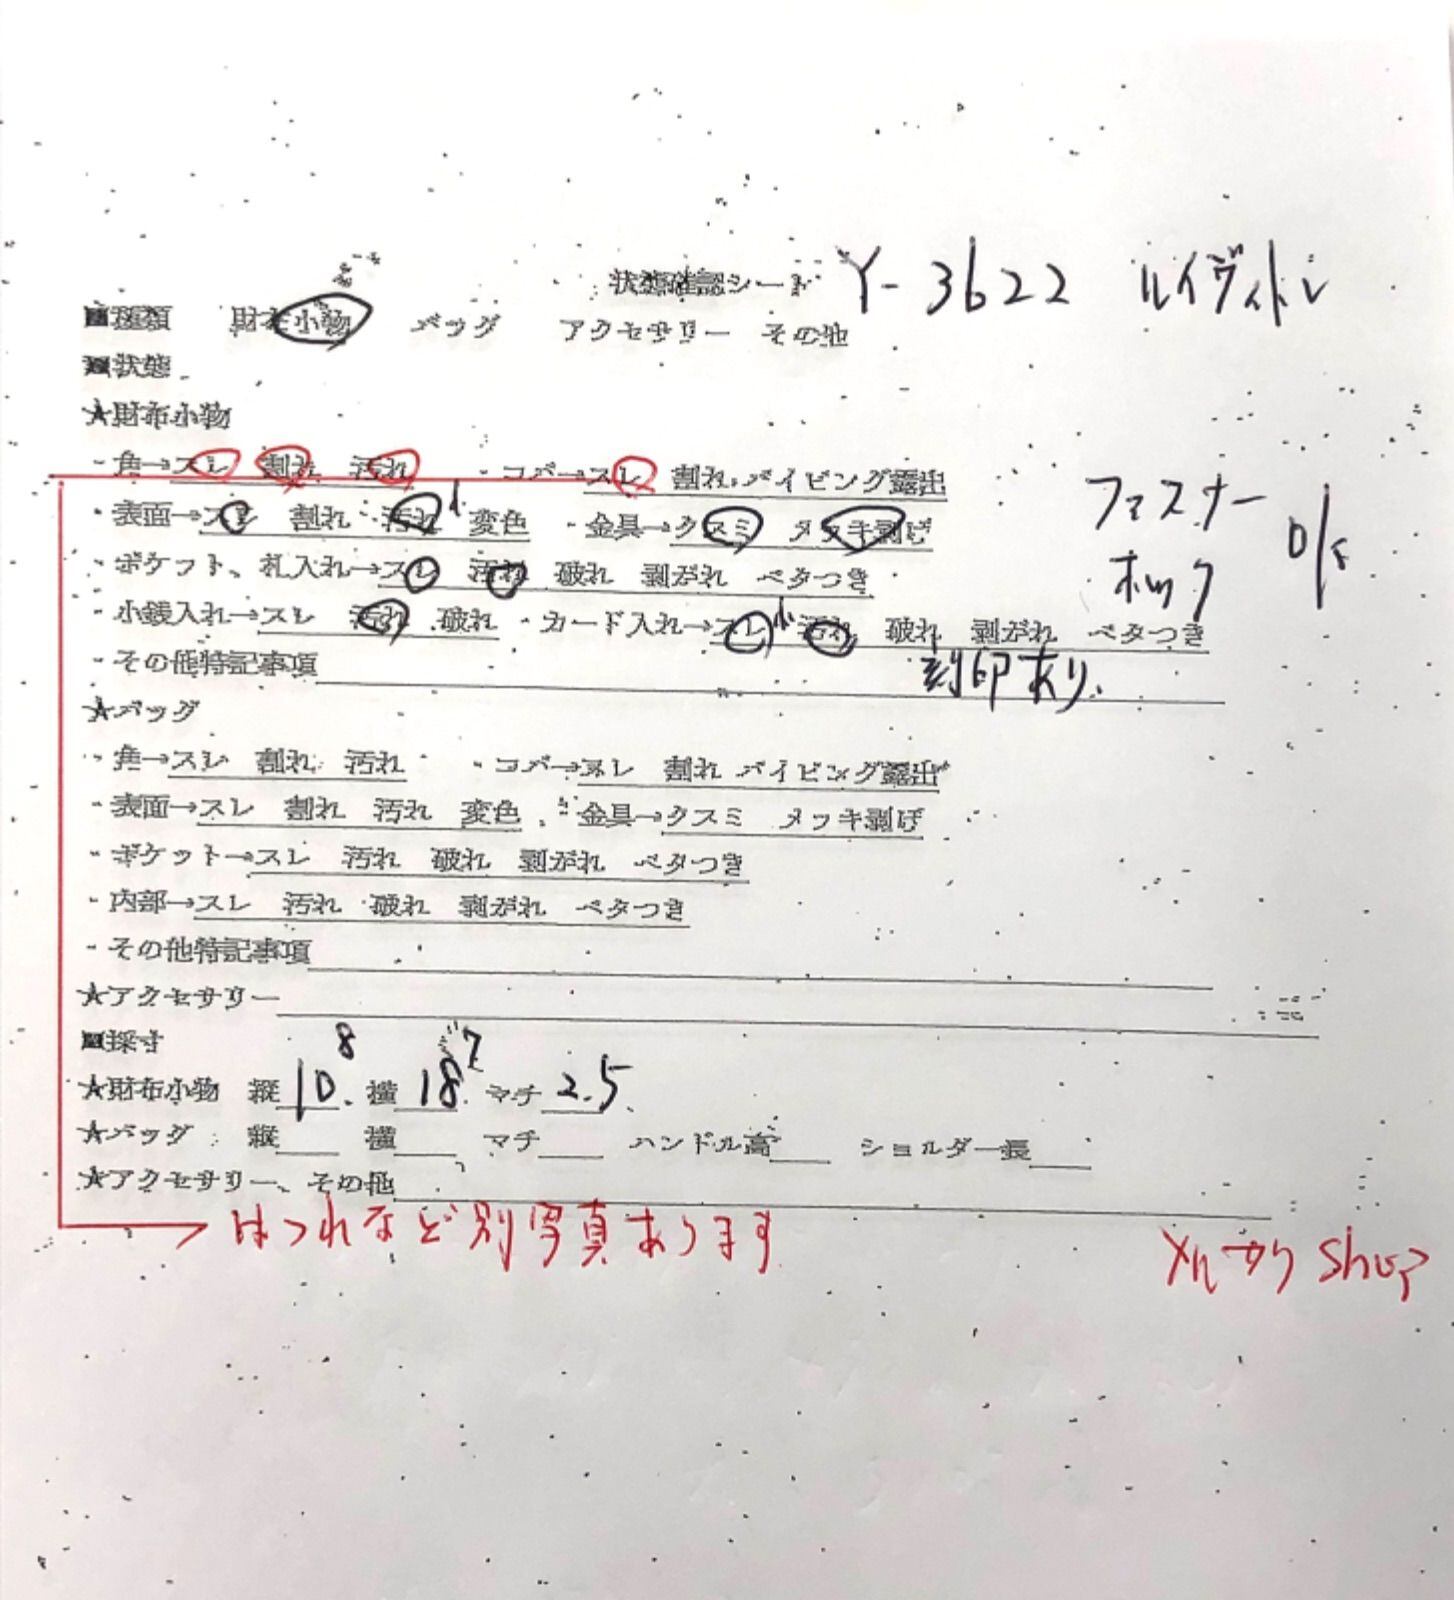 状態確認シート Y-3622 ルイヴィトン
■種類 財布小物 バッグ アクセサリー その他
■状態
★財布小物
・角→スレ 割れ 汚れ ・コバ→スレ 割れ パイピング露出
・表面→スレ 割れ 汚れ 小 変色 ・金具→クスミ メッキ剥げ
ファスナー
ホック
・ポケット、札入れ→スレ 汚れ 破れ 剥がれ ベタつき
・小銭入れ→スレ 汚れ 破れ ・カード入れ→スレ 小 汚れ 破れ 剥がれ ベタつき
・その他特記事項 刻印あり.
★バッグ
・角→スレ 割れ 汚れ ・コバ→スレ 割れ パイピング露出
・表面→スレ 割れ 汚れ 変色 ・金具→クスミ メッキ剥げ
・ポケット→スレ 汚れ 破れ 剥がれ ベタつき
・内部→スレ 汚れ 破れ 剥がれ ベタつき
・その他特記事項
★アクセサリー
■採寸
★財布小物 縦 10.8 横 18.7 マチ 2.5
★バッグ 縦 横 マチ ハンドル高 ショルダー長
★アクセサリー、その他
ほつれなど別写真あります
メルカリ Shop